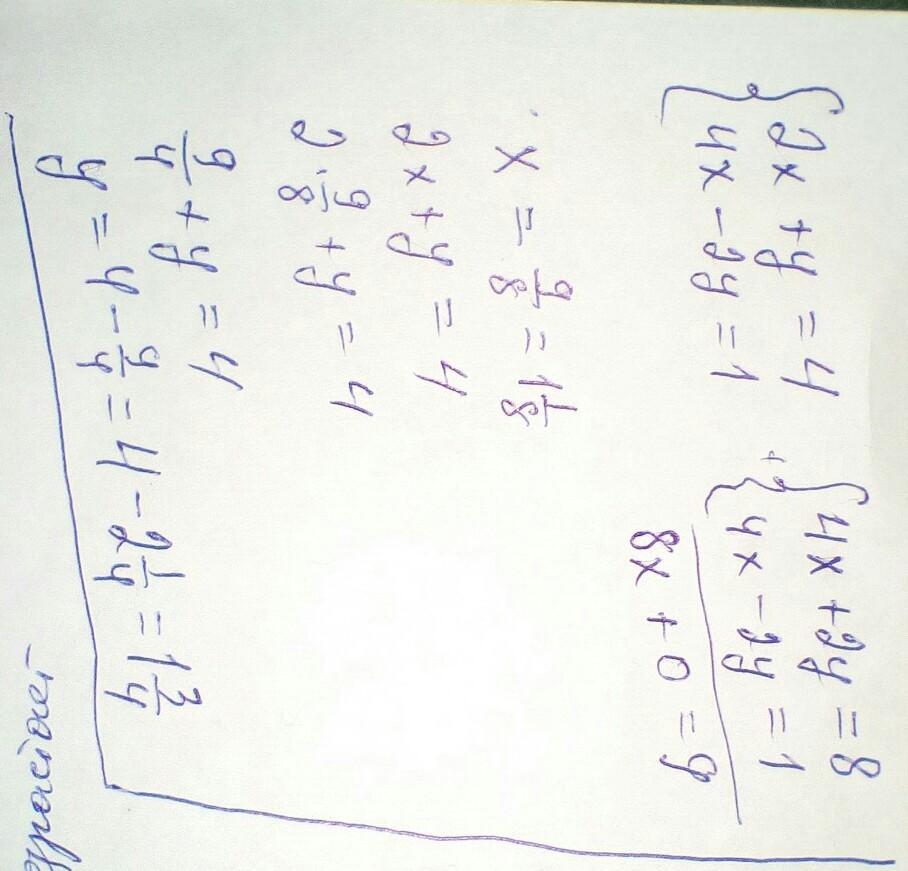 { 2x + y = 4
4x - 2y = 1
+ { 4x + 2y = 8
4x - 2y = 1
8x + 0 = 9
x = 9/8 = 1 1/8
2x + y = 4
2 · 9/8 + y = 4
9/4 + y = 4
y = 4 - 9/4 = 4 - 2 1/4 = 1 3/4